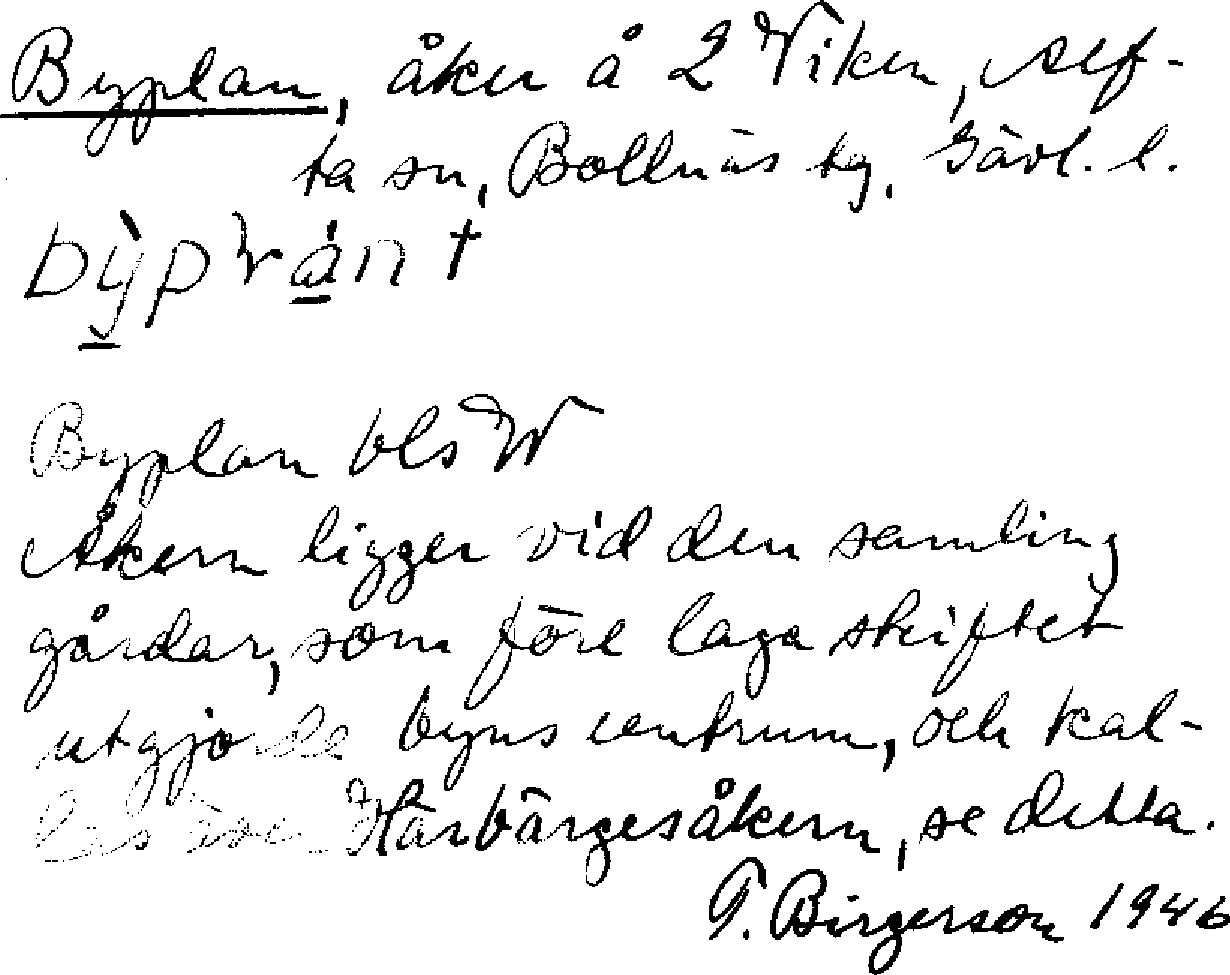 Byplan, åker å 2 Viken, Alf-
ta sn, Bollnäs tg, Gävl. l.
Byplan bls W
Åkern ligger vid den samling
gårdar, som före laga skiftet
utgjorde byns centrum, och kal-
las även Härbärgesåkern, se detta.
T. Birgerson 1946